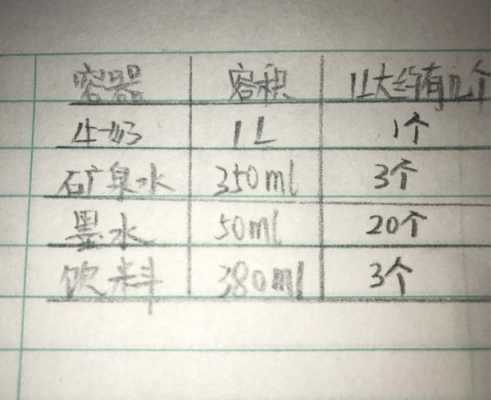 容器 容积 1L大约有几个
牛奶 1L 1个
矿泉水 350ml 3个
墨水 50ml 20个
饮料 380ml 3个